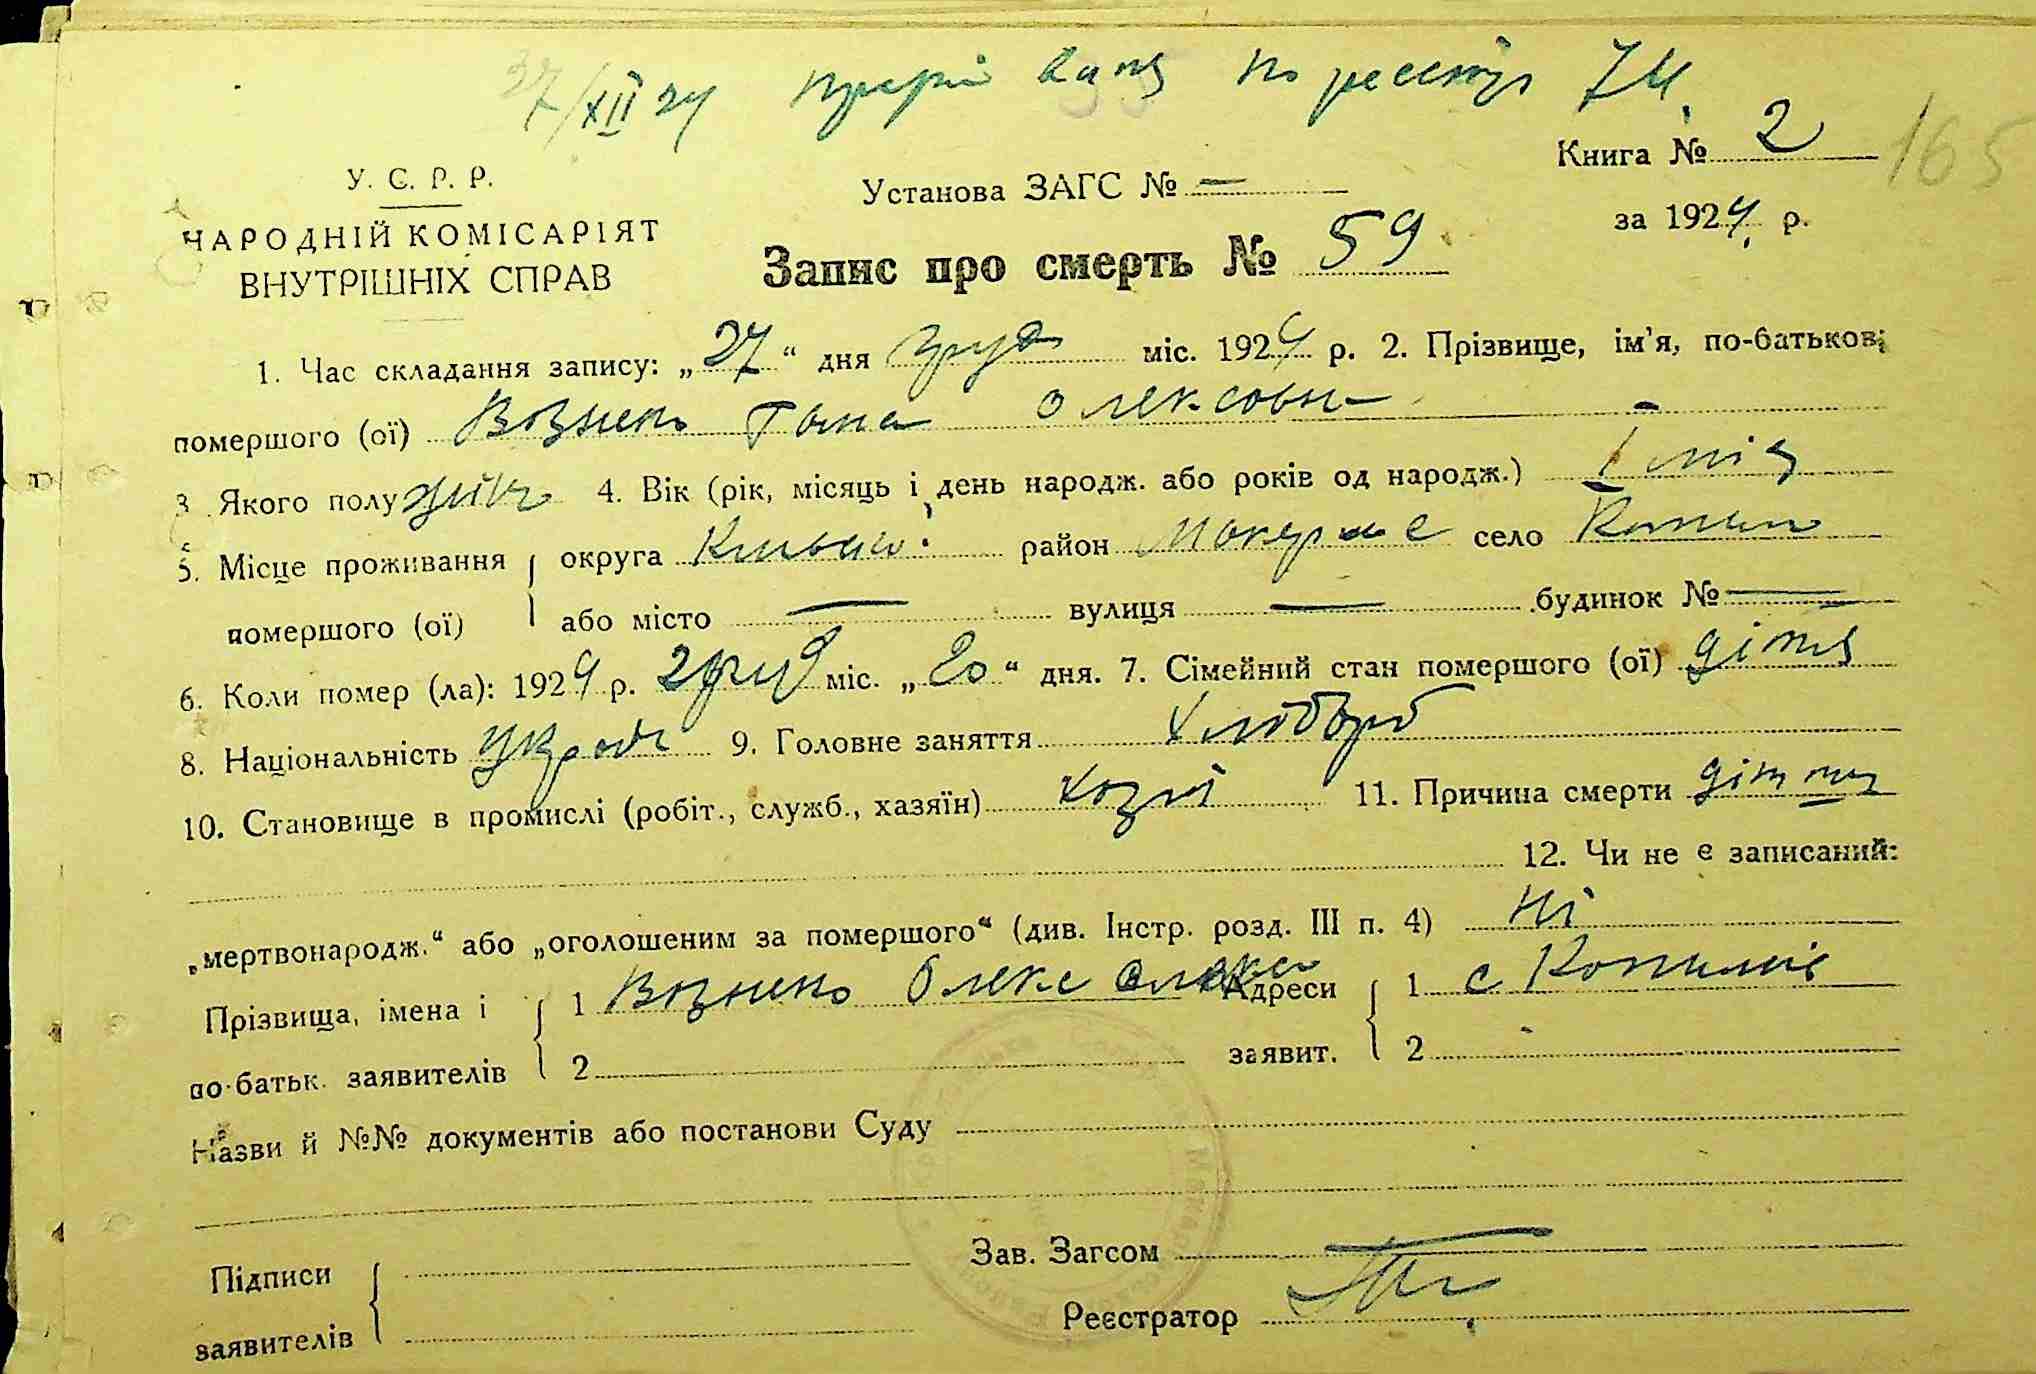 27/XII 24 по реєстру 74
165
Книга № 2
У. С. Р. Р.
Установа ЗАГС № —
за 1924 р.
НАРОДНІЙ КОМІСАРІЯТ
ВНУТРІШНІХ СПРАВ
Запис про смерть № 59
1. Час складання запису: „27“ дня груд міс. 1924 р. 2. Прізвище, ім'я, по-батькові
помершого (ої) Вознен Ганна Олексовн —
3. Якого полу жін 4. Вік (рік, місяць і день народж. або років од народж.) 1
5. Місце проживання округа Київськ район Макарів село Копил
помершого (ої) або місто — вулиця — будинок № —
6. Коли помер (ла): 1924 р. груд міс. „20“ дня. 7. Сімейний стан помершого (ої) дітя
8. Національність 9. Головне заняття хлібороб
10. Становище в промислі (робіт., служб., хазяїн) хозяї 11. Причина смерти
12. Чи не є записаний:
„мертвонародж.“ або „оголошеним за помершого“ (див. Інстр. розд. III п. 4) Ні
Прізвища, імена і 1 Вознен Олекс Адреси 1 с Копилів
по-батьк. заявителів 2 заявит. 2
Назви й №№ документів або постанови Суду
Підписи Зав. Загсом
заявителів Реєстратор